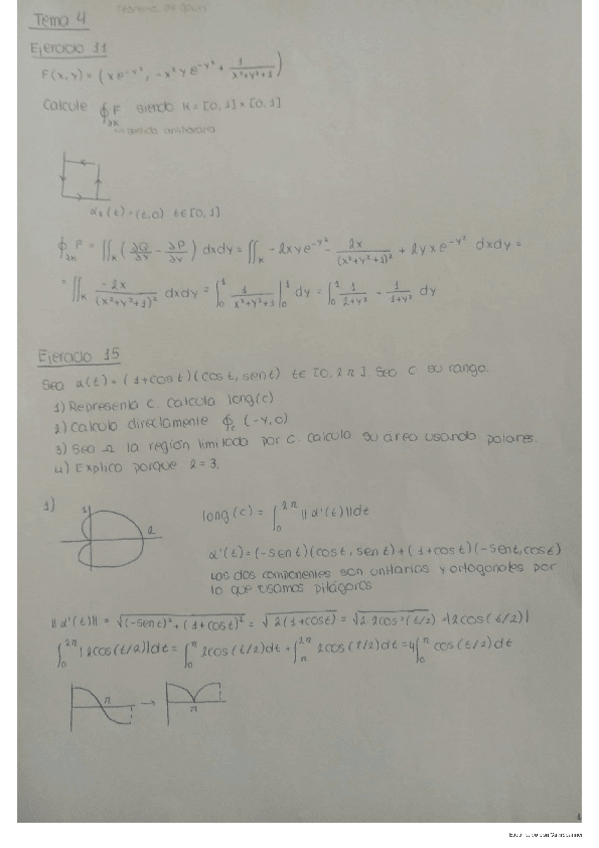 Teorema de Green
Tema 4
Ejercicio 11
F(x,y) = (xe^{-y²}, -x²ye^{-y²} + 1/(x²+y²+1))
Calcule ∮_{∂K} F siendo K = [0,1] × [0,1]
antihoraria
α₁(t) = (t,0) t∈[0,1]
∮_{∂K} F = ∬_K (∂Q/∂x - ∂P/∂y) dxdy = ∬_K -2xye^{-y²} - 2x/(x²+y²+1)² + 2yxe^{-y²} dxdy =
= ∬_K -2x/(x²+y²+1)² dxdy = ∫₀¹ 1/(x²+y²+1) |₀¹ dy = ∫₀¹ 1/(2+y²) - 1/(1+y²) dy
Ejercicio 15
Sea α(t) = (1+cos t)(cos t, sen t) t∈[0,2π]. Sea C su rango.
1) Representa C. Calcula long(c)
2) Calcula directamente ∮_c (-y,0)
3) Sea Ω la región limitada por C. Calcula su área usando polares.
4) Explica porque 2=3.
1)
1
2
long(c) = ∫₀^{2π} ||α'(t)||dt
α'(t) = (-sen t)(cos t, sen t) + (1+cos t)(-sen t, cos t)
Las dos componentes son unitarias y ortogonales por
lo que usamos pitágoras
||α'(t)|| = √((-sen t)² + (1+cos t)²) = √(2(1+cos t)) = √(2·2cos²(t/2)) = |2cos(t/2)|
∫₀^{2π} |2cos(t/2)|dt = ∫₀^π 2cos(t/2)dt + ∫_π^{2π} 2cos(t/2)dt = 4∫₀^π cos(t/2)dt
π → π